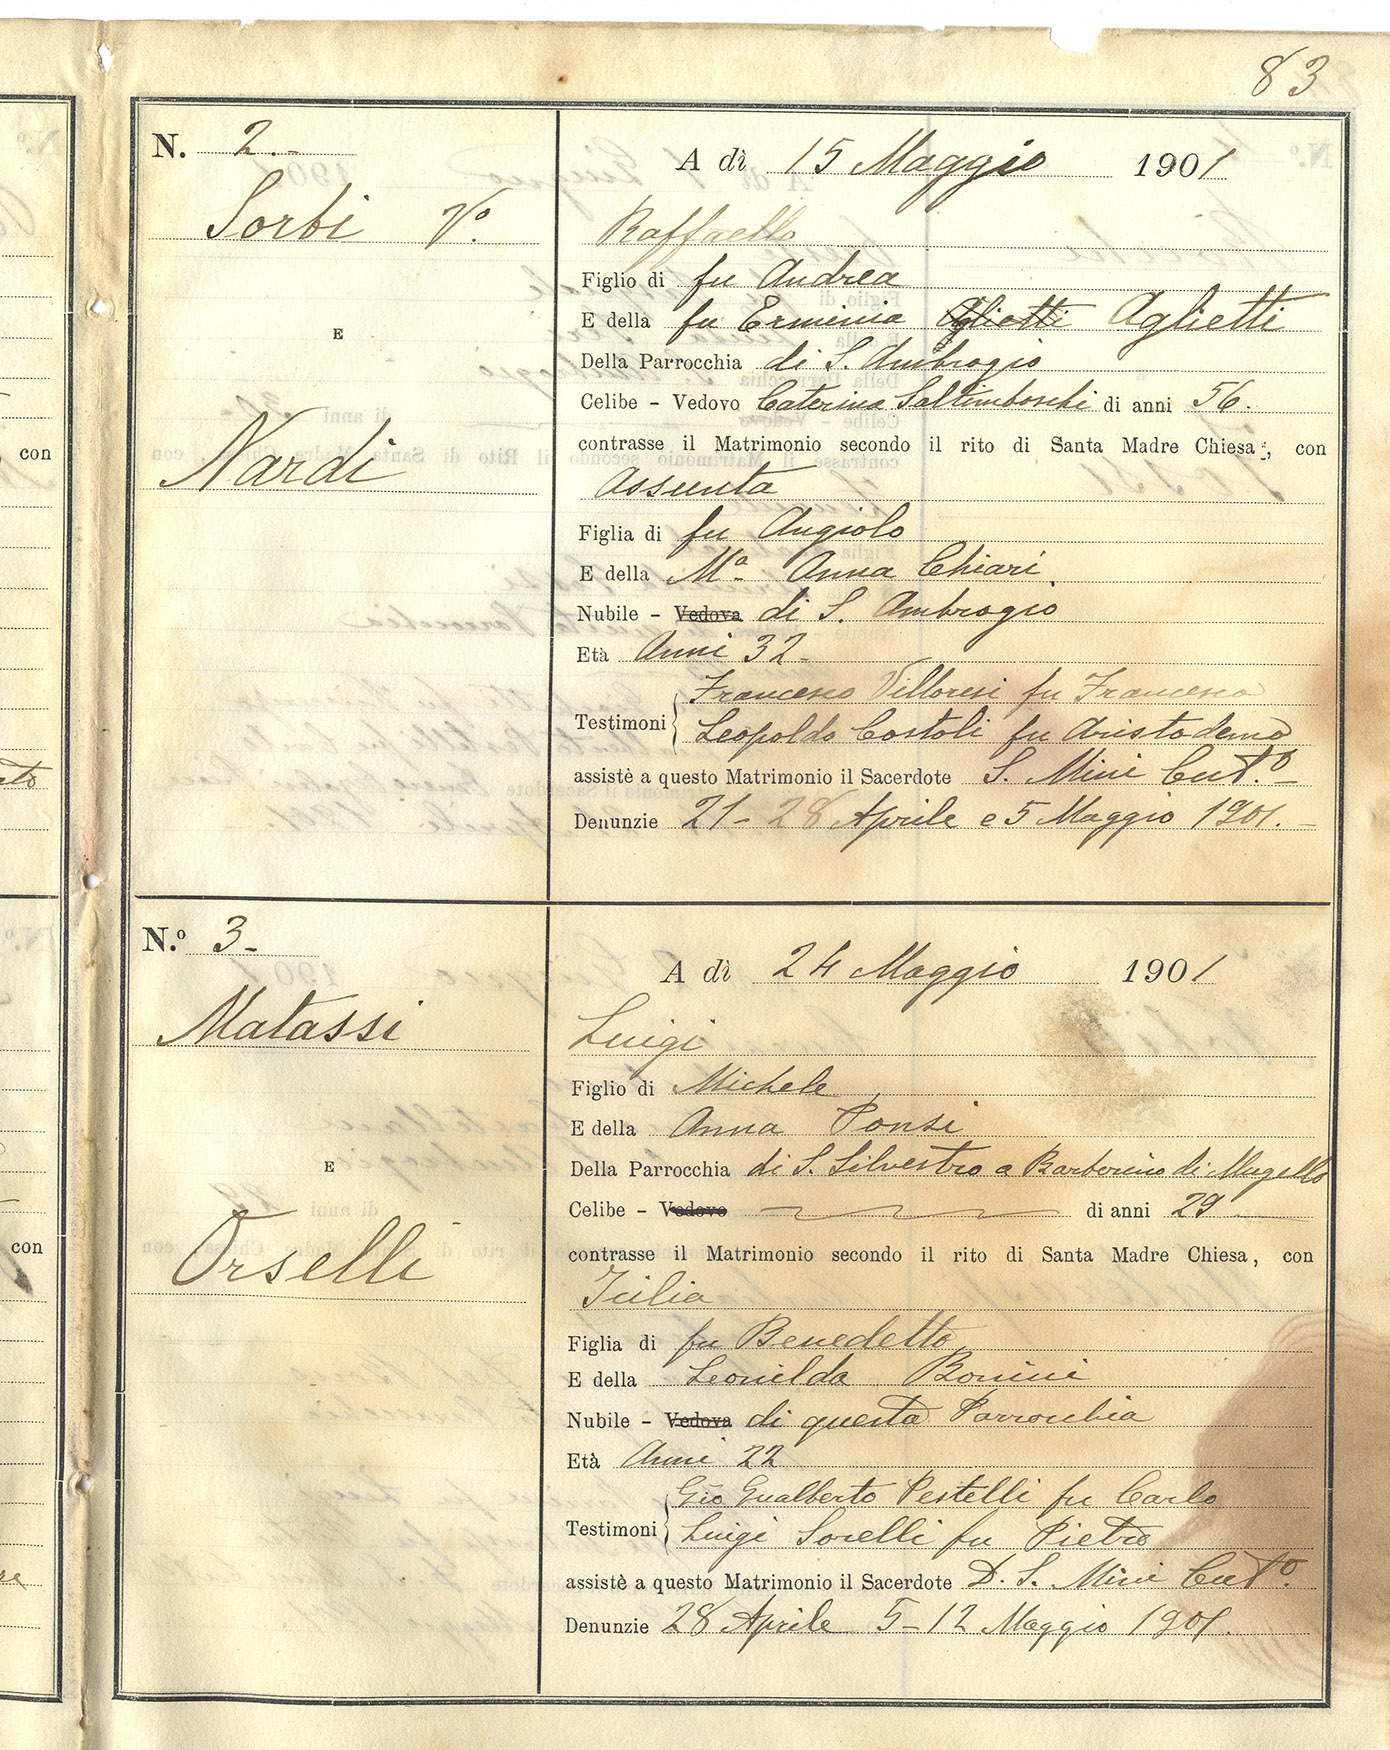 83
N. 2.-
Sorbi Vº.
E
Nardi
A dì 15 Maggio 1901
Raffaello
Figlio di fu Andrea
E della fu Erminia Agliotti Aglietti
Della Parrocchia di S. Ambrogio
Celibe - Vedovo Caterina Saltimboschi di anni 56.
contrasse il Matrimonio secondo il rito di Santa Madre Chiesa, con
Assunta
Figlia di fu Angiolo
E della Mª Anna Chiari
Nubile - Vedova di S. Ambrogio
Età Anni 32-
Testimoni Francesco Villoresi fu Francesco
Leopoldo Costoli fu Aristodemo
assistè a questo Matrimonio il Sacerdote S. Mini Curtº.-
Denunzie 21-28 Aprile e 5 Maggio 1901.-
N.º 3-
Matassi
E
Orselli
A dì 24 Maggio 1901
Luigi
Figlio di Michele
E della Anna Ponsi
Della Parrocchia di S. Silvestro a Barberino di Mugello
Celibe - Vedovo di anni 29
contrasse il Matrimonio secondo il rito di Santa Madre Chiesa, con
Icilia
Figlia di fu Benedetto
E della Leonilda Bonini
Nubile - Vedova di questa Parrocchia
Età Anni 22
Testimoni Gio Gualberto Pestelli fu Carlo
Luigi Sorelli fu Pietro
assistè a questo Matrimonio il Sacerdote D. S. Mini Curtº.
Denunzie 28 Aprile 5-12 Maggio 1901.
con
con